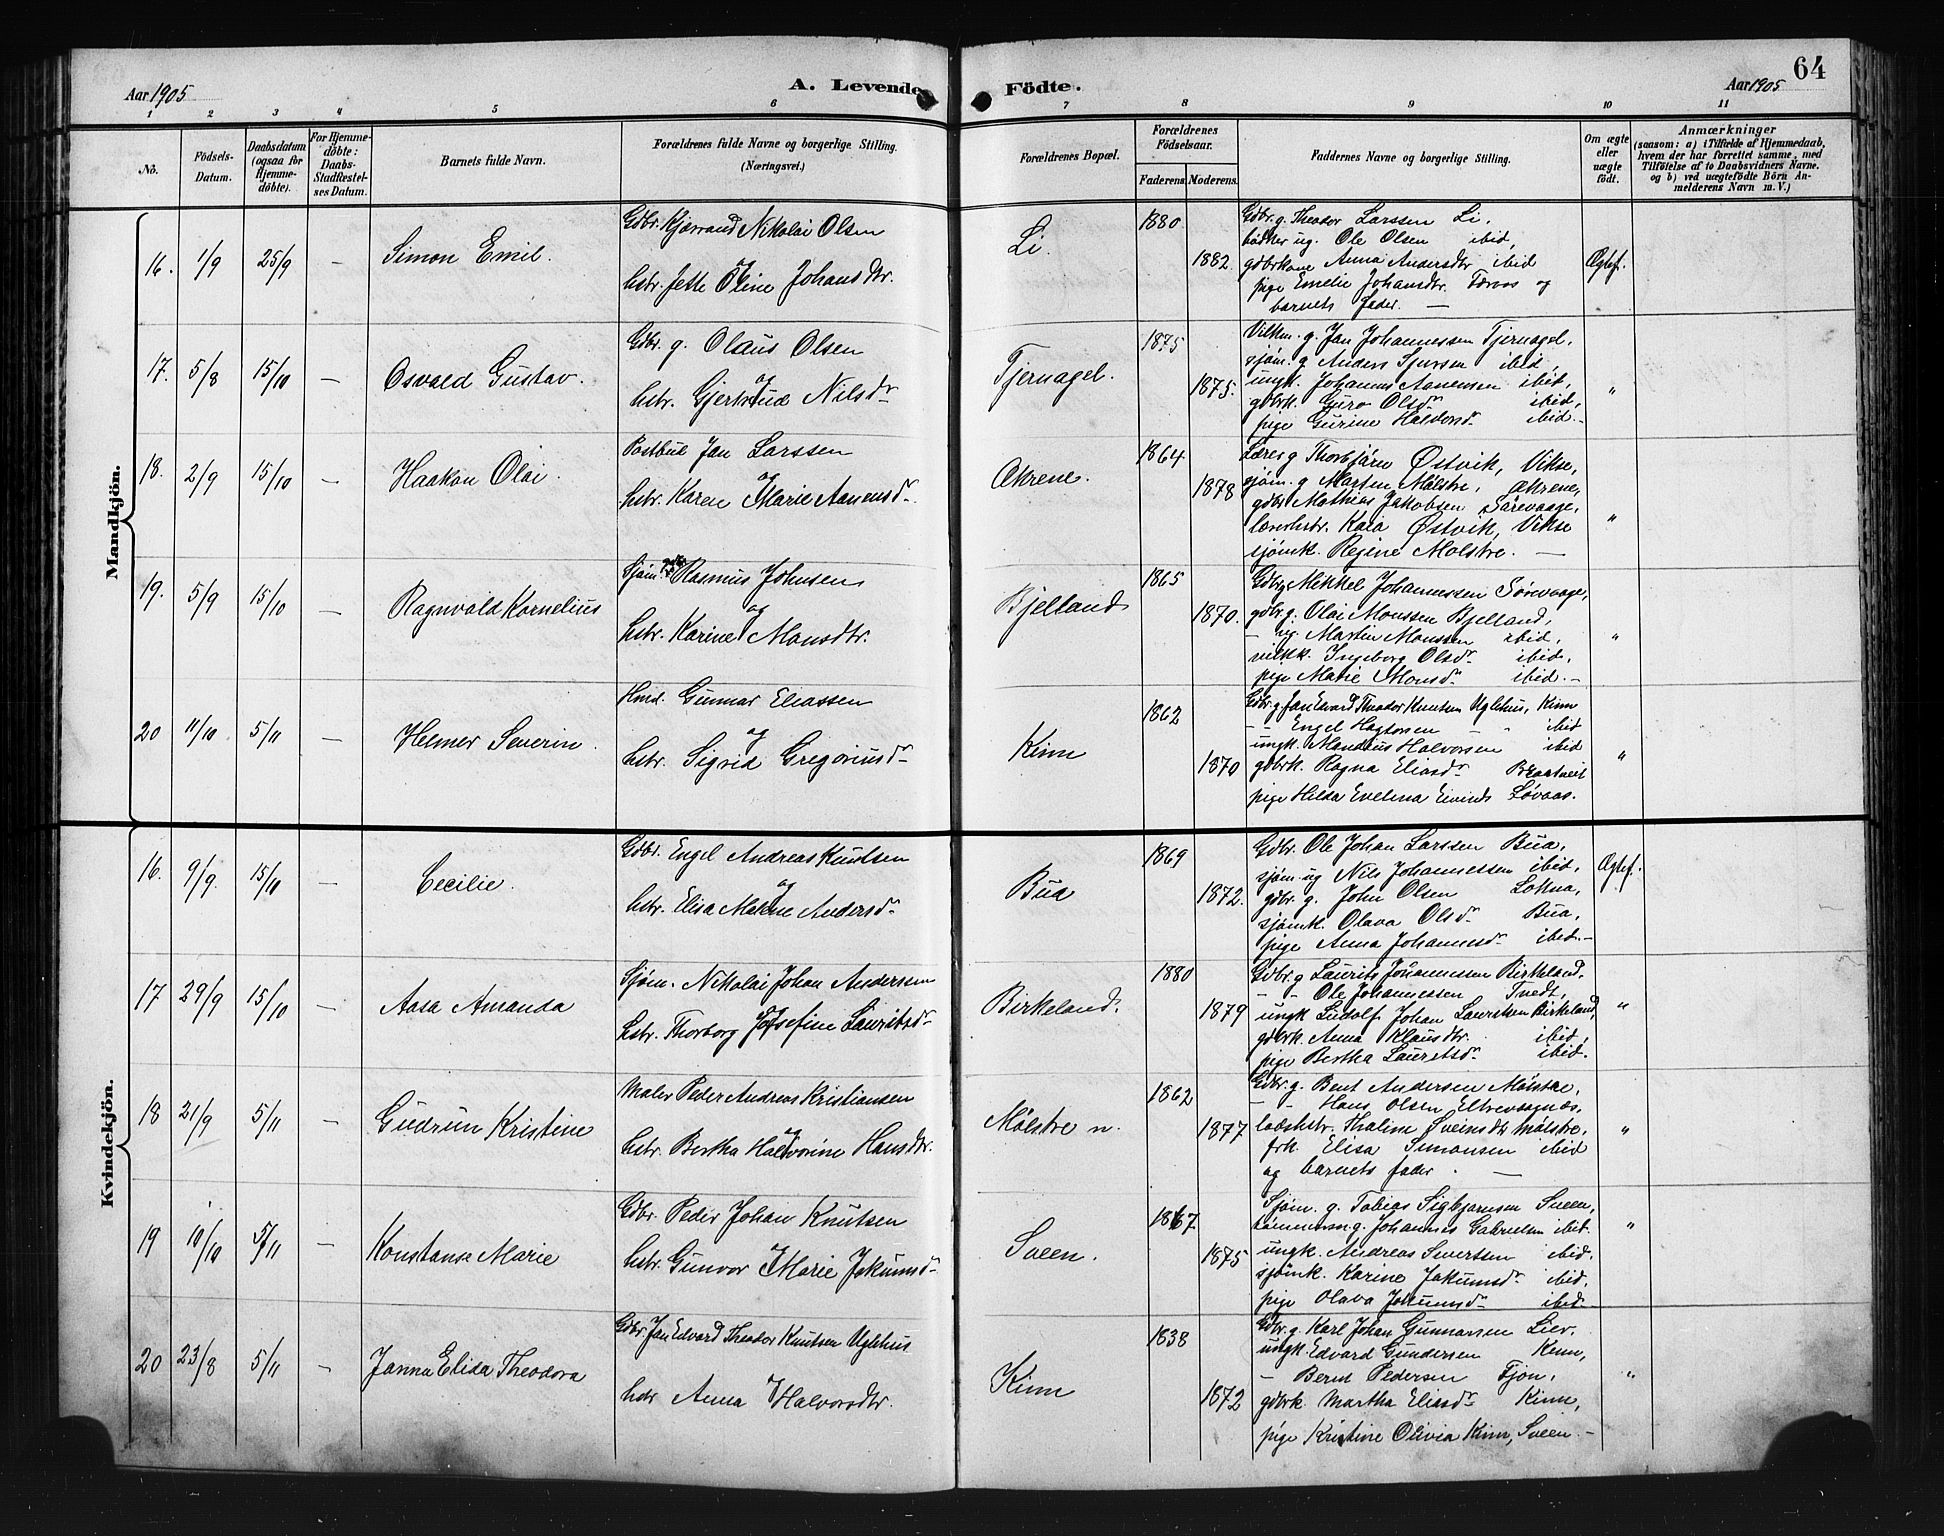 Aar 1905 A. Levende Födte. Aar 1905 64
1 2 3 4 5 6 7 8 9 10 11
No. Födsels-Datum. Daabsdatum (ogsaa for Hjemme-döbte). For Hjemme-döbte: Daabs-Stadfæstel-ses Datum. Barnets fulde Navn. Forældrenes fulde Navne og borgerlige Stilling. (Næringsvei.) Forældrenes Bopæl. Forældrenes Födselsaar. Faderens. Moderens. Faddernes Navne og borgerlige Stilling. Om ægte eller uægte födt. Anmærkninger (saasom: a) i Tilfælde af Hjemmedaab, hvem der har forrettet samme, med Tilföielse af to Daabsvidners Navne. og b) ved uægtefödte Börn An-melderens Navn m. V.)
Mandkjön.
16. 1/9 25/9 — Simon Emil.
Gdbr. Kjørrand Nikolai Olsen
og
hstr. Jette Oline Johansdtr.
Li. 1880 1882.
Gdbr. g. Theodor Larssen Li.
bødker ug. Ole Olsen ibid,
gdbrkone Anna Andersdtr ibid
pige Emelie Johansdtr. og
barnets fader. —
Ægtef.
17. 5/8 15/10 — Osvald Gustav.
Gdbr. g. Olaus Olsen
og
hstr. Gjertrud Nilsdr
Tjernagel. 1875 1875.
Vilkm. g. Jan Johannessen Tjernagel,
sjöm. g Anders ibid,
ungk. Johannes Aanensen ibid,
gdbrk. Guro Olsdr ibid,
pige Gurine Halvorsdr ibid. -
"
18. 2/9 15/10 — Haakon Olai.
Postbud Jan Larssen
og
hstr. Karen Marie Aanensdr.
Økrene. 1864 1878
Lærer g Thorbjörn Østvik, Vikse,
sjöm. g Marten Mölstre, Økrene,
gdbr Mathias Jakobsen Sörevaage,
lærerhstr. Kaia Østvik, Vikse
sjömk. Regine Molstre. —
"
19. 5/9 15/10 — Ragnvald Kornelius
Sjöm. Rasmus Johnsen
og
hstr. Karine Monsdtr.
Bjelland 1865 1870.
Gdbr g Mikkel Johannessen Sörevaage,
gdbr. g. Olai Monssen Bjelland,
— ug. Martin Monssen ibid,
vilkk. Ingeborg Olsdr ibid,
pige Marie Monsdr ibid. -
"
20 11/10 5/11 — Helmer Severin.
Hmd. Gunnar Eliassen
og
hstr. Sigrid Gregoriusdr
Kinn 1862 1870
Gdbr. g. Jan Edvard Theodor Knutsen Uglehus, Kinn
— Engel ibid
ungk. Mandius Halvorsen ibid
gdbrk. Ragna Eliasdr
pige Hilda Evelina Eivinds Løvaas.
"
Kvindekjön.
16. 9/9. 15/10 — Cecilie.
Gdbr. Engel Andreas Knutsen
og
hstr. Elisa Malene Andersdr
Bua 1869 1872.
Gdbr. Ole Johan Larssen Bua,
sjöm. ug Nils Johannessen ibid,
gdbr. g. John Olsen Lokna,
sjömk. Olava Olsdr Bua,
pige Anna Johannesdr ibid. -
Ægtef.
17 29/9 15/10 — Aasa Amanda
Sjöm. Nikolai Johan Anderssen
og
hstr. Thorborg Josefine Lauritsdr
Birkeland. 1880 1879
Gdbr. g Laurits Johannessen Birkeland,
— — Ole Johannessen Tvedt,
ungk Ludolf Johan Lauritsen Birkeland,
gdbrk. Anna Klausdtr. ibid,
pige Bertha Lauritsdr ibid.
"
18 21/9 5/11 — Gudrun Kristine
Maler Peder Andreas Kristiansen
og
hstr. Bertha Halvorine Hansdtr.
Mölstre n. 1862 1877
Gdbr. g. Bent Andersen Mölstre,
— — Hans Olsen
lodshstr. Thaline Sveinsdtr Mölstre,
frk. Elisa Simonsen ibid
og barnets fader. —
"
19 10/10 5/11 — Konstanse Marie
Gdbr. Peder Johan Knutsen
og
hstr. Gunvor Marie Jakumsdr
Sveen. 1867 1875
Sjöm. g. Tobias Sigbjørnsen Sveen,
tömmerm. g. Johannes Gabrielsen ibid.
ungk. Andreas Sivertsen ibid.
sjömk. Karine Jakumsdr ibid.
pige Olava Jakumsdr ibid.
"
20 23/8 5/11 — Janna Elida Theodora
Gdbr. Jan Edvard Theodor Knutsen Uglehus
og
hstr Anna Halvorsdtr.
Kinn 1838 1872
Gdbr. g. Karl Johan Gunnarsen Lier,
ungk. Edvard Gundersen Kinn,
— Bernt Pedersen Tjon,
gdbrk. Martha Eliasdr Kinn,
pige Kristine Olivia Kinn, Sveen. -
"